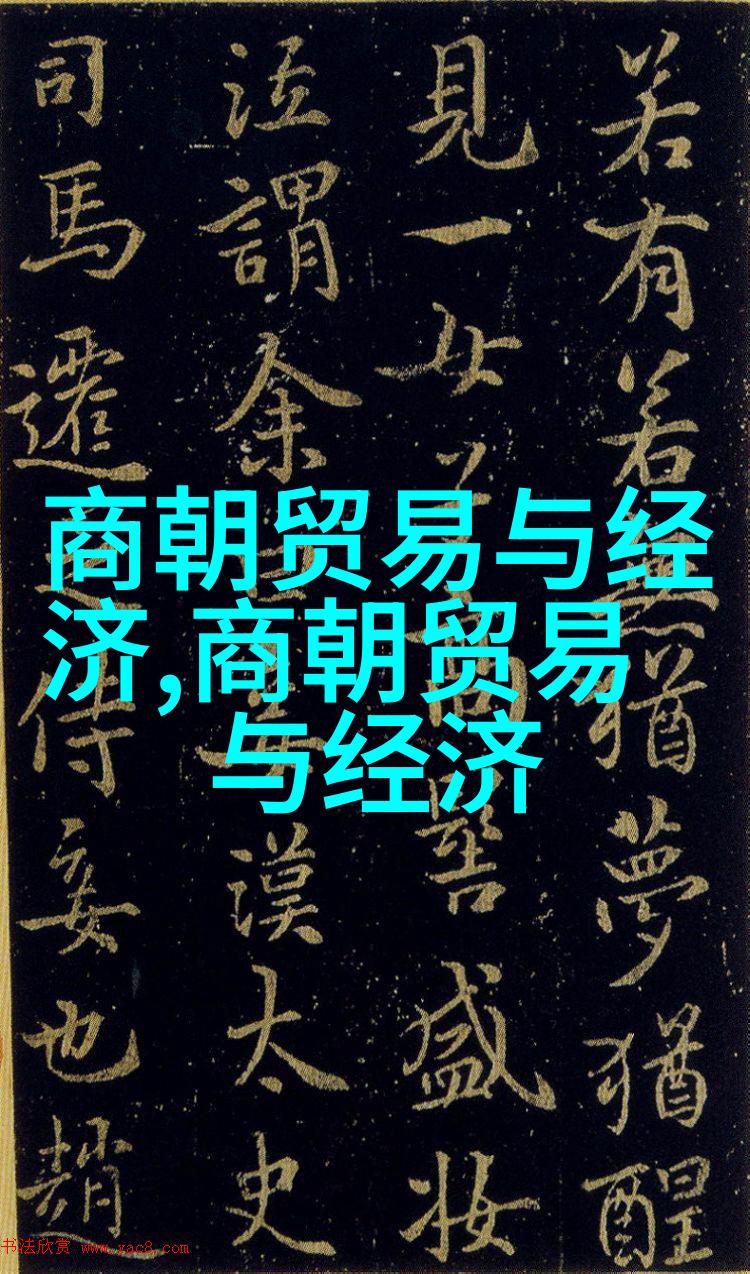 商朝贸易与经
济,商朝贸易
与经济
若有若無猶夢猶醒
見一女高髻盛妝
泣謂余漢太史
司馬遷侍妾也趙
书法欣赏 www.yac8.com